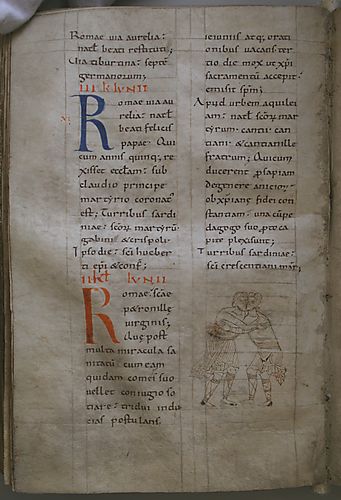 Romae via aurelia: nat̅l beati restituti;
Via tiburtina: septe̅
germanorum;
III K̅L IVNII
Romae via au
relia: nat̅l
beati felicis
papae. Qui
cum annis quinq; re
xisset eccl̅am: sub
claudio principe
martyrio coronat᾽
est; Turribus sardi
niae: sc̅or̅ martyru̅
gabini & crispoli.
Ipso die: sc̅i hucber
ti ep̅i & conf̅;
II K̅L IVNII
Romae: sc̅ae
p&ronille
virginis;
Quę post
multa miracula sa
nitatu̅ cum eam
quidam comes suo
vellet coniugio so
tiare: tridui indu
cias postulans.
ieiuniis atq; orati
onibus vacans ter
tio die mox ut xp̅i
sacramentu̅ accepit
emisit sp̅m;
Apud urbem aquilei
am: nat̅l sc̅or̅ mar
tyrum. cantii. can
tiani. & cantianillę
fratrum; Qui cum
ducerent p̱sapiam
de genere anicior̅
ob xp̅ianę fidei con
stantiam: una cu̅ pe
dagogo suo p̱to ca
pite plexi sunt;
Turribus sardiniae:
sc̅i crescentiani mar̅;